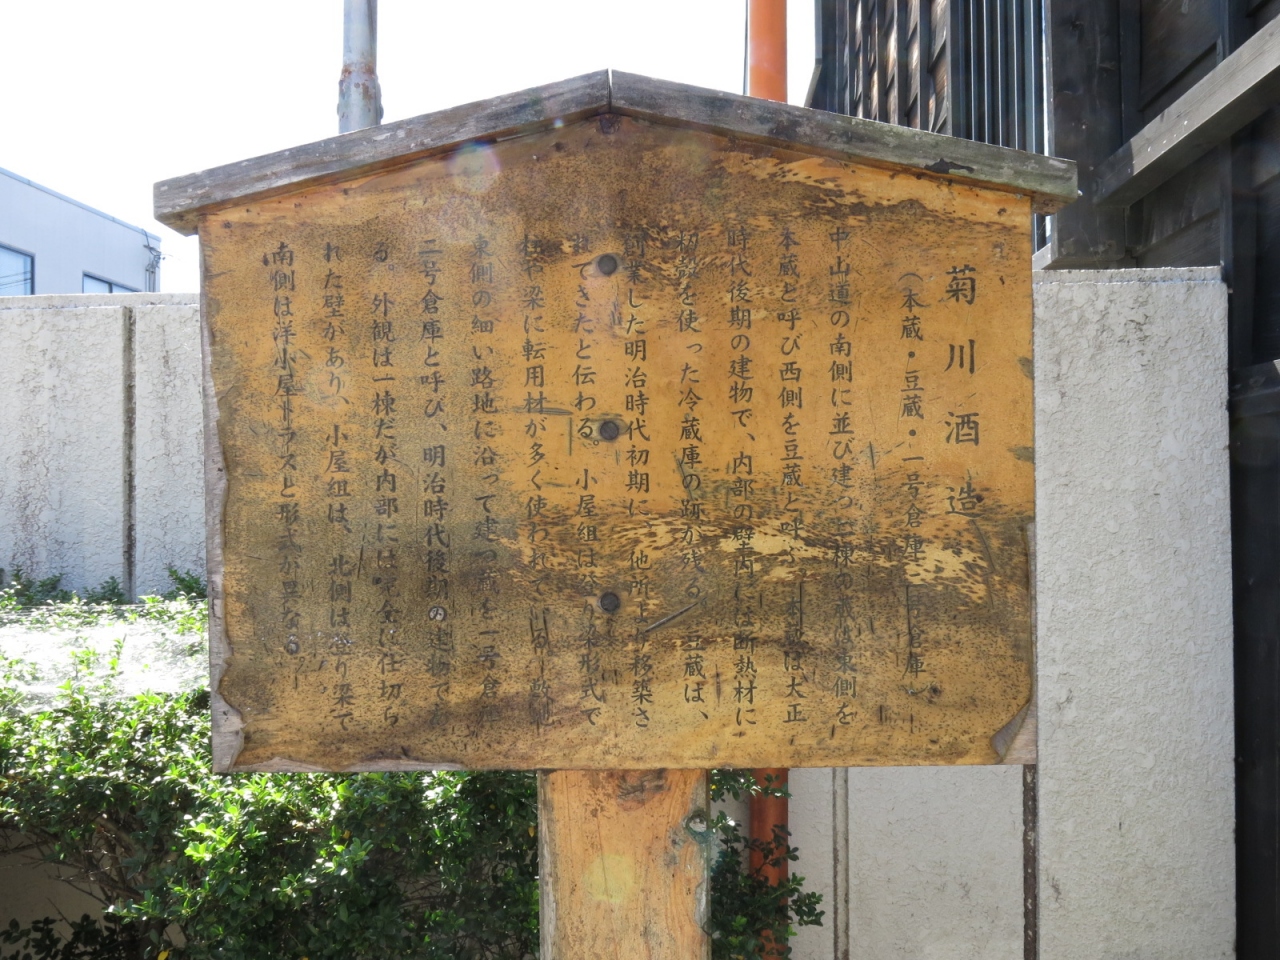 菊川酒造
（本蔵・豆蔵・一号倉庫・二号倉庫）
中山道の南側に並び建つ二棟の蔵は東側を
本蔵と呼び西側を豆蔵と呼ぶ。本蔵は大正
時代後期の建物で、内部の壁内には断熱材に
籾殻を使った冷蔵庫の跡が残る。豆蔵は、
創業した明治時代初期に、他所より移築さ
れてきたと伝わる。小屋組は登り梁形式で
柱や梁に転用材が多く使われている。敷地
東側の細い路地に沿って建つ蔵を一号倉庫
二号倉庫と呼び、明治時代後期の建物であ
る。外観は一棟だが内部には完全に仕切ら
れた壁があり、小屋組は、北側は登り梁で
南側は洋小屋トラスと形式が異なる。